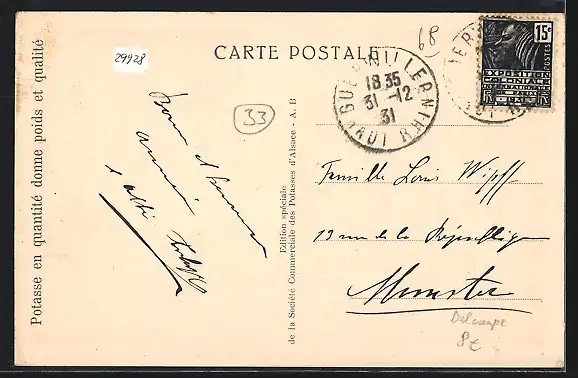 Potasse en quantité donne poids et qualité
29928
CARTE POSTALE
68
33
GUEBWILLER HT RHIN (DU)
18 35
31 -12
31
15c
POSTES
EXPOSITION
COLONIALE
INTERNATIONALE
PARIS 1931
Edition spéciale
de la Société Commerciale des Potasses d'Alsace - A. B
Bonne et heureuse
année
Famille Louis Wipff
13 rue de la République
Munster
Découpe
8€